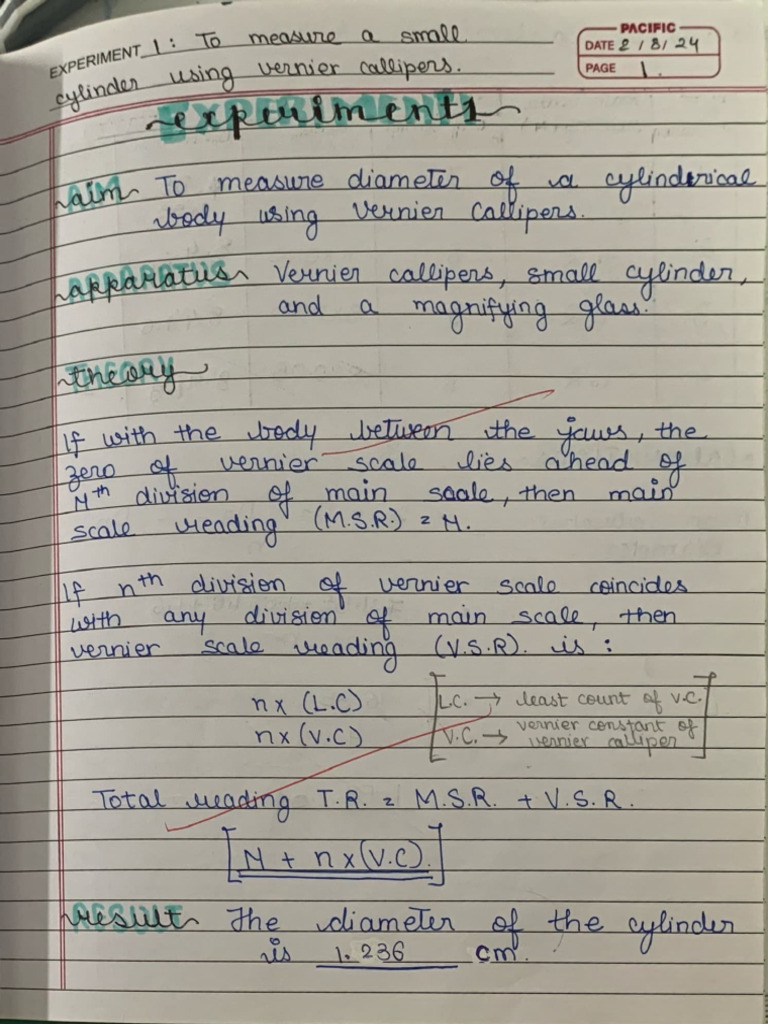 PACIFIC
EXPERIMENT 1: To measure a small
DATE 2/8/24
cylinder using vernier callipers.
PAGE 1.
experiments
EXPERIMENTS
aim To measure diameter of a cylinderical
AIM
body using Vernier Callipers.
apparatus Vernier callipers, small cylinder,
APPARATUS
and a magnifying glass.
theory
THEORY
If with the body between the jaws, the
zero of vernier scale lies ahead of
Nth division of main scale, then main
scale reading (M.S.R.) = N.
If nth division of vernier scale coincides
with any division of main scale, then
vernier scale reading (V.S.R). is :
n x (L.C) [L.C. → least count of V.C.
n x (V.C) V.C. → vernier constant of
vernier calliper]
Total reading T.R. = M.S.R. + V.S.R.
[N + n x (V.C).]
result The diameter of the cylinder
RESULT
is 1.236 cm.